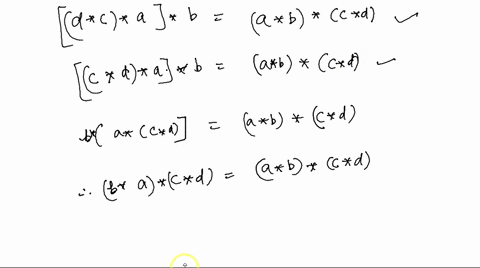 [(d * c) * a] * b = (a * b) * (c * d) ✓
[(c * d) * a] * b = (a * b) * (c * d) ✓
b * [a * (c * d)] = (a * b) * (c * d)
∴ (b * a) * (c * d) = (a * b) * (c * d)